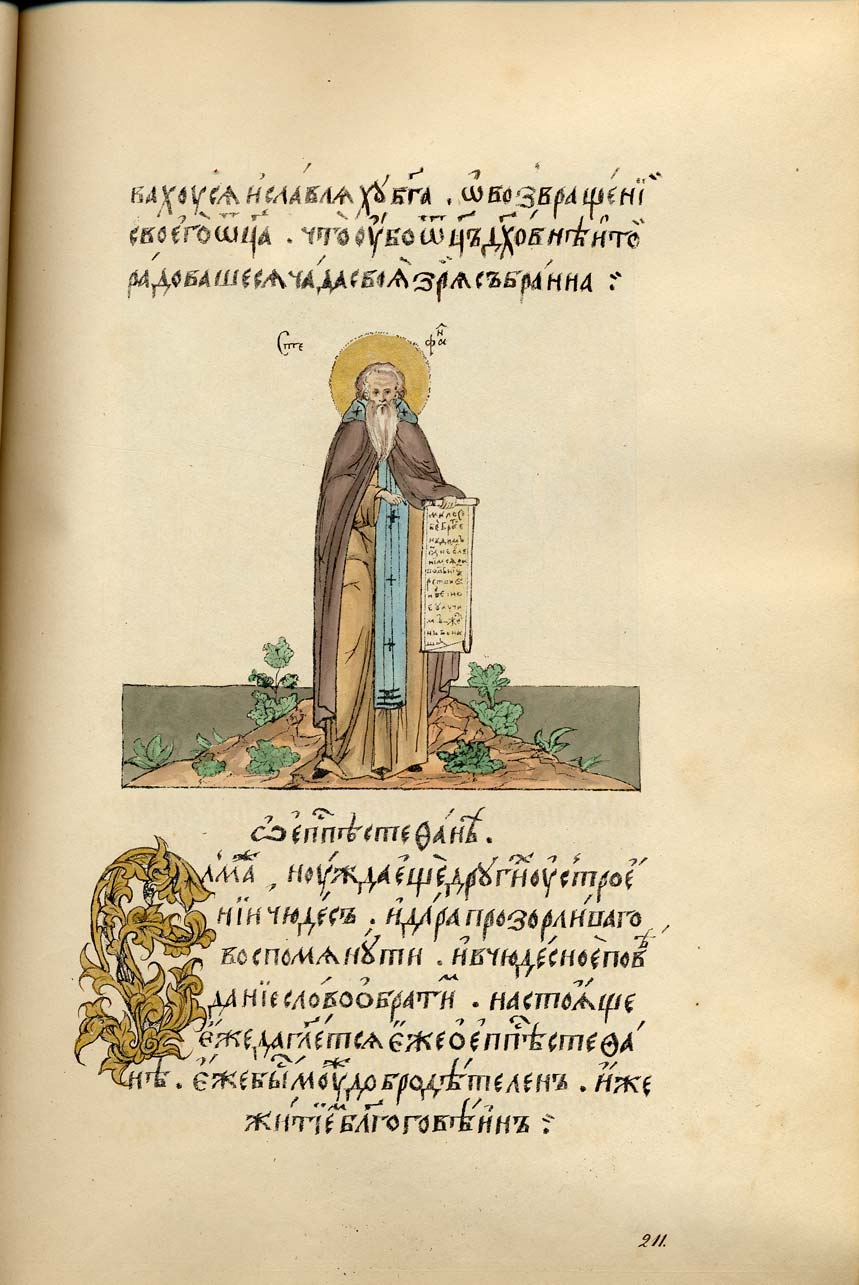 вахоуся и҆сла́вляхꙋбг҃а . ѡ҆возвраще́нїи
своего̀ѡ҆ц҃а . что̀оу҆́боѡ҆ц҃ъдх҃о́внѣи҆то̀
ра́довашесяча́дасвоѧ̀зрѧ̀събра́нна :
Ѡ҆еп҃пѣстеѳа́нѣ .
ноу́ждаещѐдрꙋгоⷢ҇оу҆строе́
нїичюде́съ . и҆да́рапрозорли́ваго
воспомянꙋ́ти . и҆вчюде́сноеповѣ
да́нїесло́вообрати́ти . настоѧ́ще
е҆́жедагл҃етсяе҆́жеоеп҃пѣстеѳа́
нѣ . е҆́жебы́мꙋ́ждобродѣ́теленъ . и҆́же
житїе́мъбл҃гоговѣ́инъ :
211.